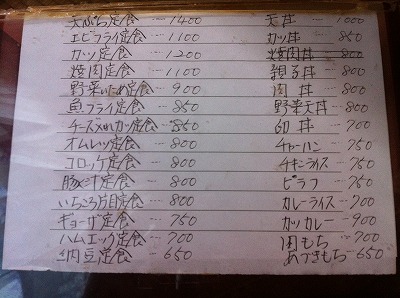 天ぷら定食 ---1400
エビフライ定食 --- 1100
カツ定食 --- 1200
焼肉定食 --- 1100
野菜いため定食 --- 900
魚フライ定食 --- 850
チーズメンチカツ定食 --- 850
オムレツ定食 --- 800
コロッケ定食 --- 800
豚汁定食 --- 800
いちころ片目定食 --- 800
ギョーザ定食 --- 750
ハムエッグ定食 --- 700
納豆定食 --- 650
天丼 --- 1000
カツ丼 --- 850
焼肉丼 --- 800
親子丼 --- 800
肉丼 --- 800
野菜天丼 --- 800
卵丼 --- 700
チャーハン --- 750
チキンライス --- 750
ピラフ --- 750
カレーライス --- 700
カツカレー --- 900
肉もち --- 700
あづきもち --- 650